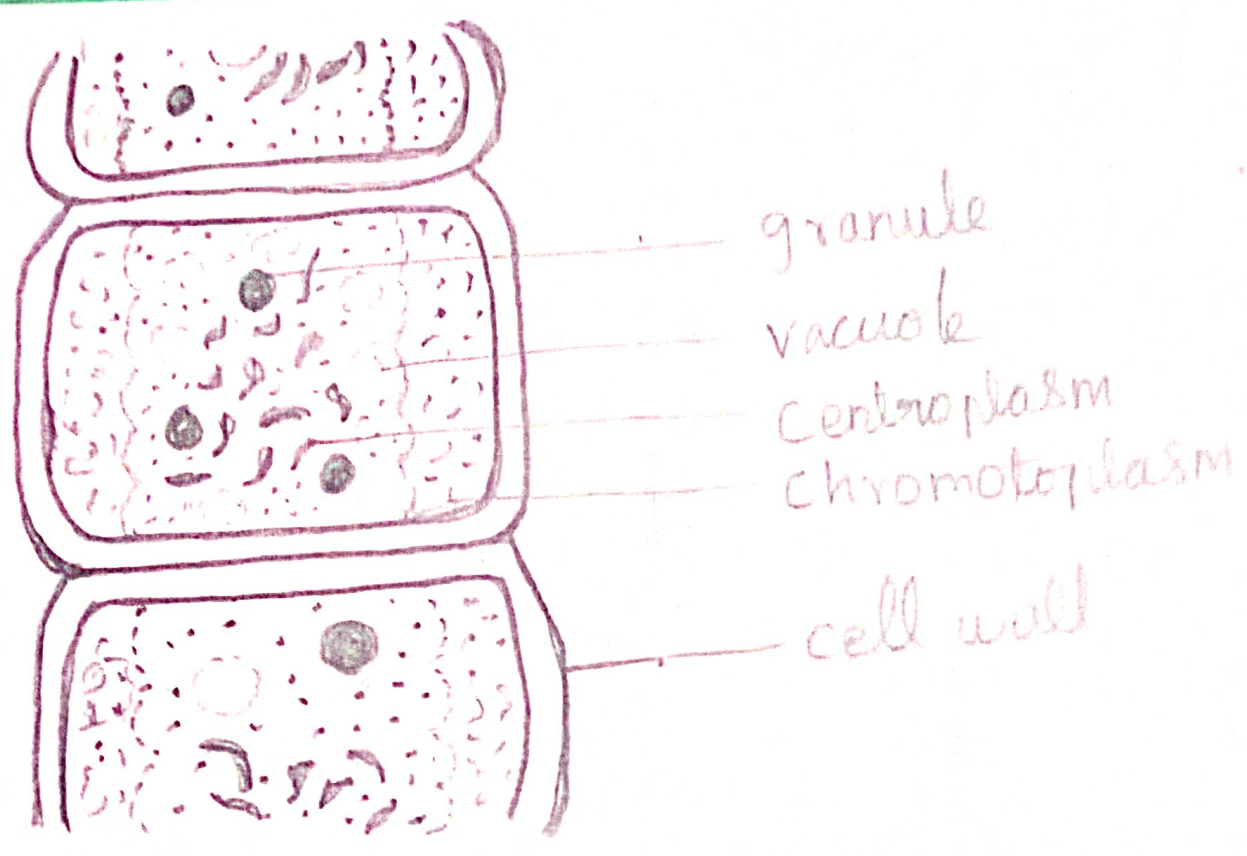 granule
vacuole
centroplasm
chromotoplasm
cell wall